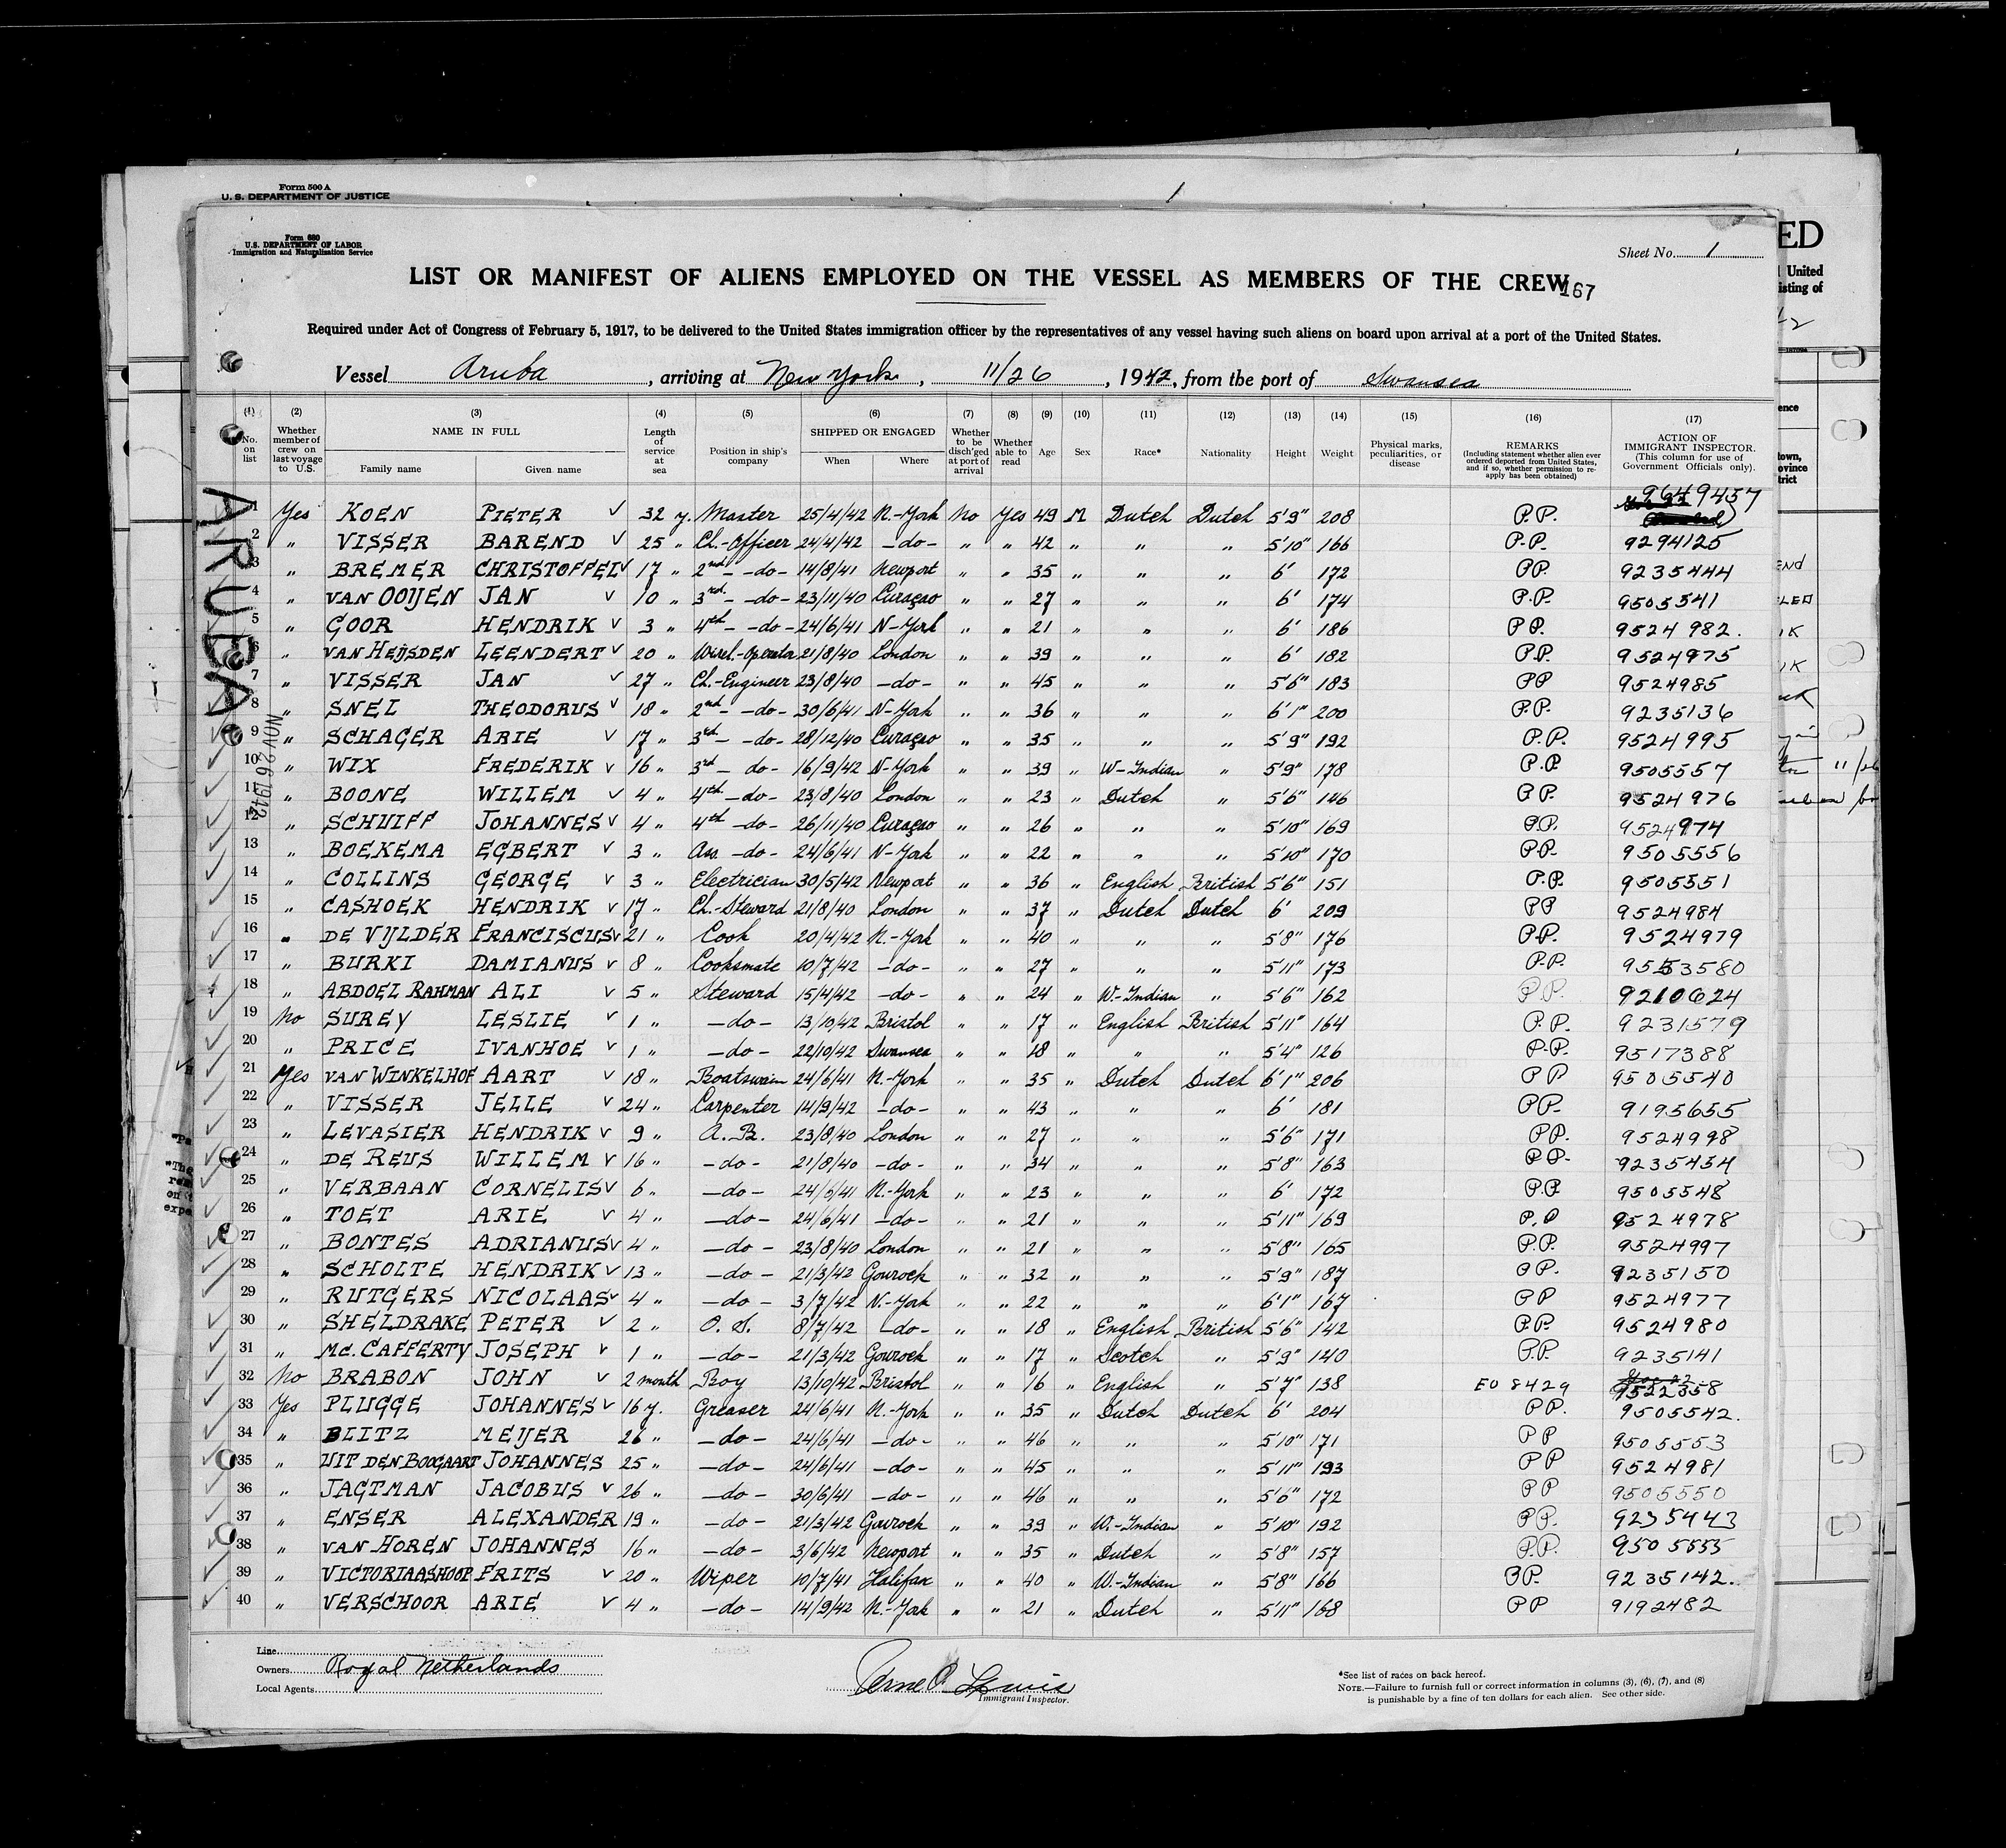 Form 500 A
U. S. DEPARTMENT OF JUSTICE
1
Form 680
U.S. DEPARTMENT OF LABOR
Immigration and Naturalization Service
Sheet No. 1
LIST OR MANIFEST OF ALIENS EMPLOYED ON THE VESSEL AS MEMBERS OF THE CREW
167
Required under Act of Congress of February 5, 1917, to be delivered to the United States immigration officer by the representatives of any vessel having such aliens on board upon arrival at a port of the United States.
Vessel Aruba, arriving at New York, 11/26, 1942, from the port of Swansea
(1) (2) (3) (4) (5) (6) (7) (8) (9) (10) (11) (12) (13) (14) (15) (16) (17)
No. on list
Whether member of crew on last voyage to U.S.
NAME IN FULL
Family name Given name
Length of service at sea
Position in ship's company
SHIPPED OR ENGAGED
When Where
Whether to be disch'ged at port of arrival
Whether able to read
Age
Sex
Race*
Nationality
Height
Weight
Physical marks, peculiarities, or disease
REMARKS
(Including statement whether alien ever ordered deported from United States, and if so, whether permission to reapply has been obtained)
ACTION OF IMMIGRANT INSPECTOR
(This column for use of Government Officials only).
ARUBA
NOV 26 1942
1 Yes KOEN PIETER √ 32 y. Master 25/4/42 N.-York No Yes 49 M Dutch Dutch 5'9" 208 P.P. 9649457
2 " VISSER BAREND √ 25 " Ch.-Officer 24/4/42 -do- " " 42 " " " 5'10" 166 P.P. 9294125
3 " BREMER CHRISTOFFEL √ 17 " 2nd - -do- 14/8/41 Newport " " 35 " " " 6' 172 PP. 9235444
4 " VAN OOIJEN JAN √ 10 " 3rd - -do- 23/11/40 Curaçao " " 27 " " " 6' 174 P.P. 9505541
5 " GOOR HENDRIK √ 3 " 4th - -do- 24/6/41 N-York " " 21 " " " 6' 186 PP. 9524982.
6 " VAN HEIJSDEN LEENDERT √ 20 " Wirel.-Operator 21/8/40 London " " 39 " " " 6' 182 P.P. 9524975
7 " VISSER JAN √ 27 " Ch.-Engineer 23/8/40 -do- " " 45 " " " 5'6" 183 PP 9524985
8 " SNEL THEODORUS √ 18 " 2nd - -do- 30/6/41 N-York " " 36 " " " 6'1" 200 P.P. 9235136
9 " SCHAGER ARIE √ 17 " 3rd - -do- 28/12/40 Curaçao " " 35 " " " 5'9" 192 P.P. 9524995
10 " WIX FREDERIK √ 16 " 3rd - do- 16/9/42 N-York " " 39 " W-Indian " 5'9" 178 P.P 9505557
11 " BOONE WILLEM √ 4 " 4th -do- 23/8/40 London " " 23 " Dutch " 5'6" 146 PP. 9524976
12 " SCHUIFF JOHANNES √ 4 " 4th -do- 26/11/40 Curaçao " " 26 " " " 5'10" 169 P.P. 9524974
13 " BOEKEMA EGBERT √ 3 " Ass. -do- 24/6/41 N-York " " 22 " " " 5'10" 170 P.P. 9505556
14 " COLLINS GEORGE √ 3 " Electrician 30/5/42 Newport " " 36 " English British 5'6" 151 P.P. 9505551
15 " CASHOEK HENDRIK √ 17 " Ch.-Steward 21/8/40 London " " 37 " Dutch Dutch 6' 209 PP 9524984
16 " DE VIJLDER FRANCISCUS √ 21 " Cook 20/4/42 N.-York " " 40 " " " 5'8" 176 P.P. 9524979
17 " BURKI DAMIANUS √ 8 " Cooksmate 10/7/42 -do- " " 27 " " " 5'11" 173 P.P. 9553580
18 " ABDOEL RAHMAN ALI √ 5 " Steward 15/4/42 -do- " " 24 " W.-Indian " 5'6" 162 P.P. 9210624
19 No SUREY LESLIE √ 1 " -do- 13/10/42 Bristol " " 17 " English British 5'11" 164 P.P. 9231579
20 " PRICE IVANHOE √ 1 " -do- 22/10/42 Swansea " " 18 " " " 5'4" 126 P.P. 9517388
21 Yes VAN WINKELHOF AART √ 18 " Boatswain 24/6/41 N.-York " " 35 " Dutch Dutch 6'1" 206 PP 9505540
22 " VISSER JELLE √ 24 " Carpenter 14/9/42 -do- " " 43 " " " 6' 181 PP. 9195655
23 " LEVASIER HENDRIK √ 9 " A.B. 23/8/40 London " " 27 " " " 5'6" 171 PP. 9524998
24 " DE REUS WILLEM √ 16 " -do- 21/8/40 -do- " " 34 " " " 5'8" 163 P.P. 9235434
25 " VERBAAN CORNELIS √ 6 " -do- 24/6/41 N.-York " " 23 " " " 6' 172 P.P 9505548
26 " TOET ARIE √ 4 " -do- 24/6/41 -do- " " 21 " " " 5'11" 169 P.P 9524978
27 " BONTES ADRIANUS √ 4 " -do- 23/8/40 London " " 21 " " " 5'8" 165 P.P. 9524997
28 " SCHOLTE HENDRIK √ 13 " -do- 21/3/42 Gourock " " 32 " " " 5'9" 187 PP. 9235150
29 " RUTGERS NICOLAAS √ 4 " -do- 3/7/42 N.-York " " 22 " " " 6'1" 167 PP 9524977
30 " SHELDRAKE PETER √ 2 " O.S. 8/7/42 -do- " " 18 " English British 5'6" 142 P.P. 9524980
31 " Mc. CAFFERTY JOSEPH √ 1 " -do- 21/3/42 Gourock " " 17 " Scotch " 5'9" 140 P.P. 9235141
32 No BRABON JOHN √ 2 month Boy 13/10/42 Bristol " " 16 " English " 5'7" 138 EO 8429 9522358
33 Yes PLUGGE JOHANNES √ 16 y. Greaser 24/6/41 N.-York " " 35 " Dutch Dutch 6' 204 PP. 9505542.
34 " BLITZ MEIJER 26 " -do- 24/6/41 -do- " " 46 " " " 5'10" 171 PP 9505553
35 " UIT DEN BOOGAART JOHANNES 25 " -do- 24/6/41 -do- " " 45 " " " 5'11" 193 PP 9524981
36 " JAGTMAN JACOBUS √ 26 " -do- 30/6/41 -do- " " 46 " " " 5'6" 172 PP 9505550
37 " ENSER ALEXANDER 19 " -do- 21/3/42 Gourock " " 39 " W.-Indian " 5'10" 192 PP. 9235443
38 " VAN HOREN JOHANNES 16 " -do- 3/6/42 Newport " " 35 " Dutch " 5'8" 157 P.P. 9505555
39 " VICTORIAASHOOP FRITS √ 20 " Wiper 10/7/41 Halifax " " 40 " W.-Indian " 5'8" 166 PP. 9235142.
40 " VERSCHOOR ARIE √ 4 " -do- 14/9/42 N.-York " " 21 " Dutch " 5'11" 168 PP 9192482
Line
Owners Royal Netherlands
Local Agents
Lewis
Immigrant Inspector.
*See list of races on back hereof.
NOTE.—Failure to furnish full or correct information in columns (3), (6), (7), and (8)
is punishable by a fine of ten dollars for each alien. See other side.